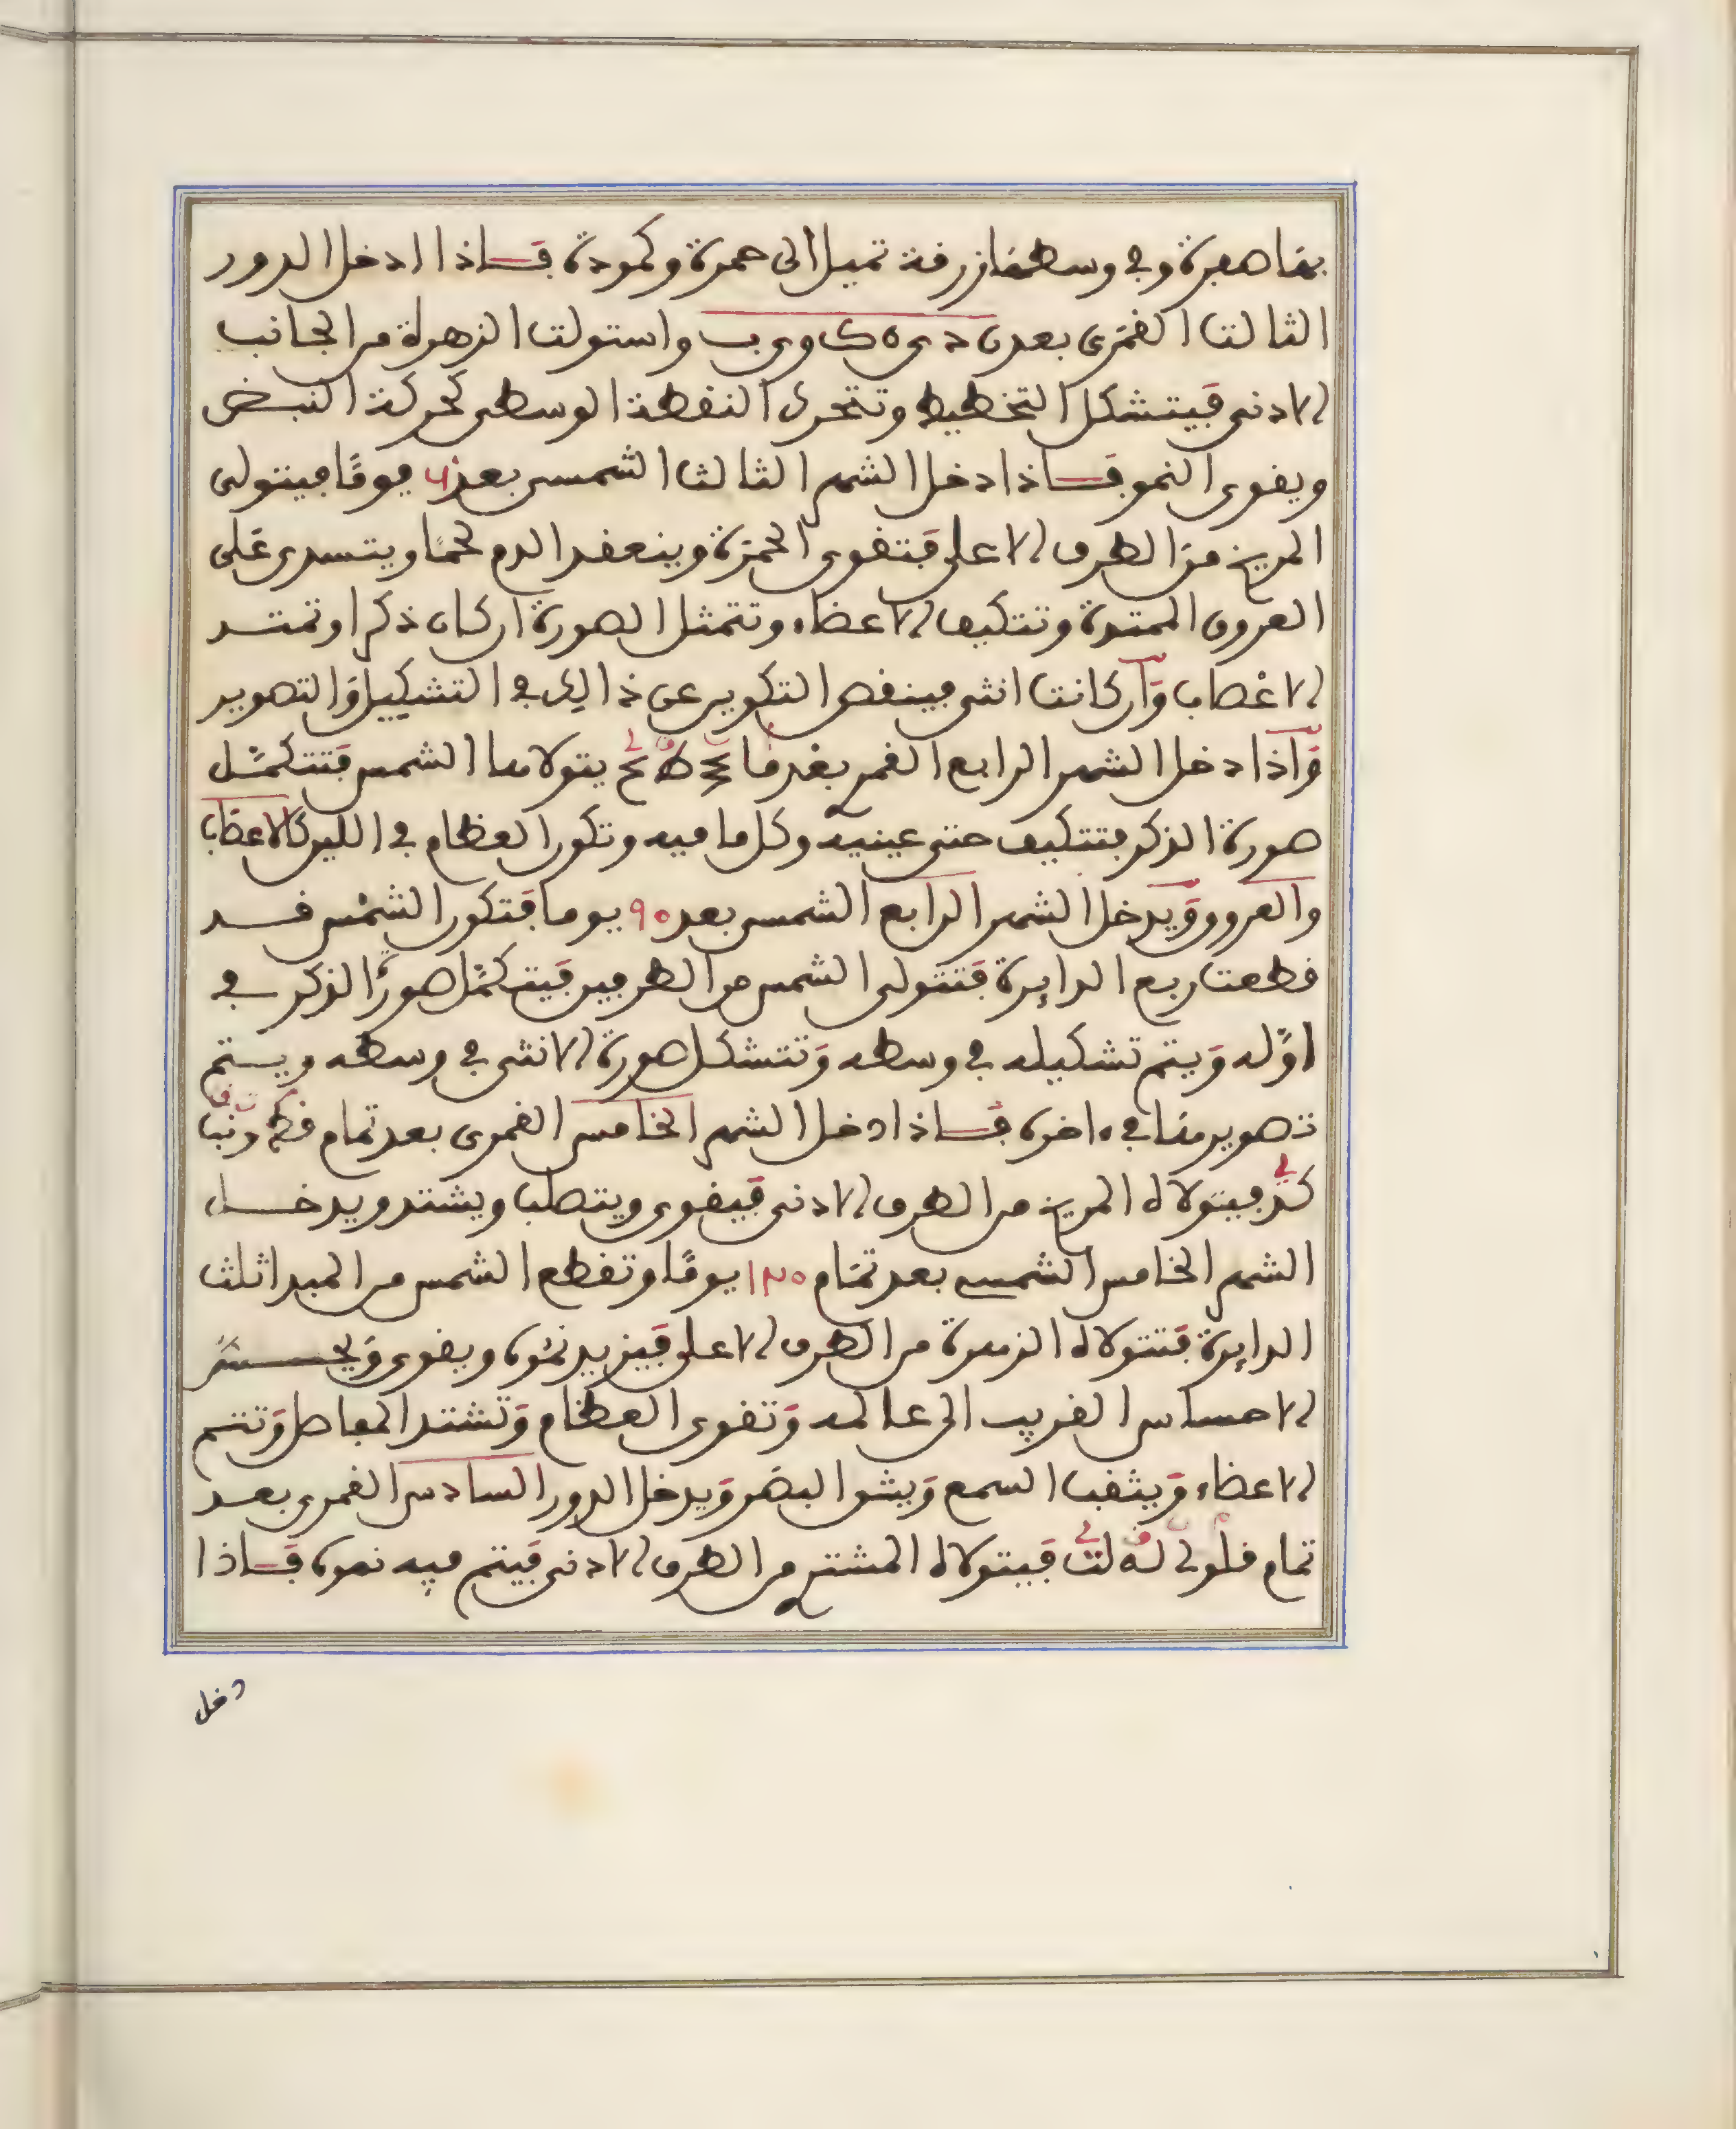 بها صعرة وفي وسطها زرفة تميل الى حمرة وكمودة فاذا ادخل الدور
الثالث القمري بعد واستولت الزهراة من الجانب
الادنى فيتشكل التخطيط وتتحرك النقطة الوسطى كحركة النبض
ويقوى النمو فاذا دخل الشهر الثالث الشمسي بعد يوما فيتولى
المريخ من الطرف الاعلى فتقوى الحمرة وينعقد الدم لحما ويتسدى على
العروق الممتدة وتتكيف الاعضاء وتتمثل الصورة ان كان ذكرا وتمتد
الاعصاب وان كانت انثى فينقص التكوين عن ذالك في التشكيل والتصوير
واذا دخل الشهر الرابع القمري بعد يتولاها الشمس فتتكمل
صورة الذكر فتتكيف حتى عينيه وكل ما فيه وتكون العظام في اللين كالاعصاب
والعروق ويدخل الشهر الرابع الشمسي بعد ٩٠ يوما فتكون الشمس قد
قطعت ربع الدايرة فتتولى الشمس من الطرفين فيتكمل صورة الذكر في
اوله ويتم تشكيله في وسطه وتتشكل صورة الانثى في وسطه ويستتم
تصويرها في ءاخره فاذا دخل الشهر الخامس القمري بعد تمام
فيتولاه المريخ من الطرف الادنى فيقوى ويتصلب ويشتد ويدخل
الشهر الخامس الشمسي بعد تمام ١٢٠ يوما وتقطع الشمس من المبدا ثلث
الدايرة فتتولاه الزهرة من الطرف الاعلى فيزيد نموه ويقوى ويحس
الاحساس القريب الى عالمه وتقوى العظام وتشتد المفاصل وتتم
الاعضاء ويثقب السمع ويشق البصر ويدخل الدور السادس القمري بعد
تمام فيتولاه المشتري من الطرف الادنى فيتم فيه نموه فاذا
دخل